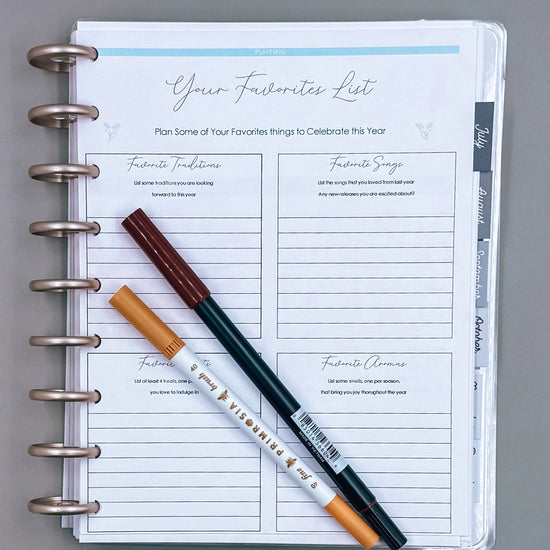 PLANNING
Your Favorites List
Plan Some of Your Favorites things to Celebrate this Year
Favorite Traditions
List some traditions you are looking
forward to this year
Favorite Songs
List the songs that you loved from last year
Any new releases you are excited about?
Favorite
List at least 4 treats, one
you love to indulge in
Favorite Aromas
List some smells, one per season,
that bring you joy thorughout the year
July
August
September
October
brush
PRIMROSIA
fine